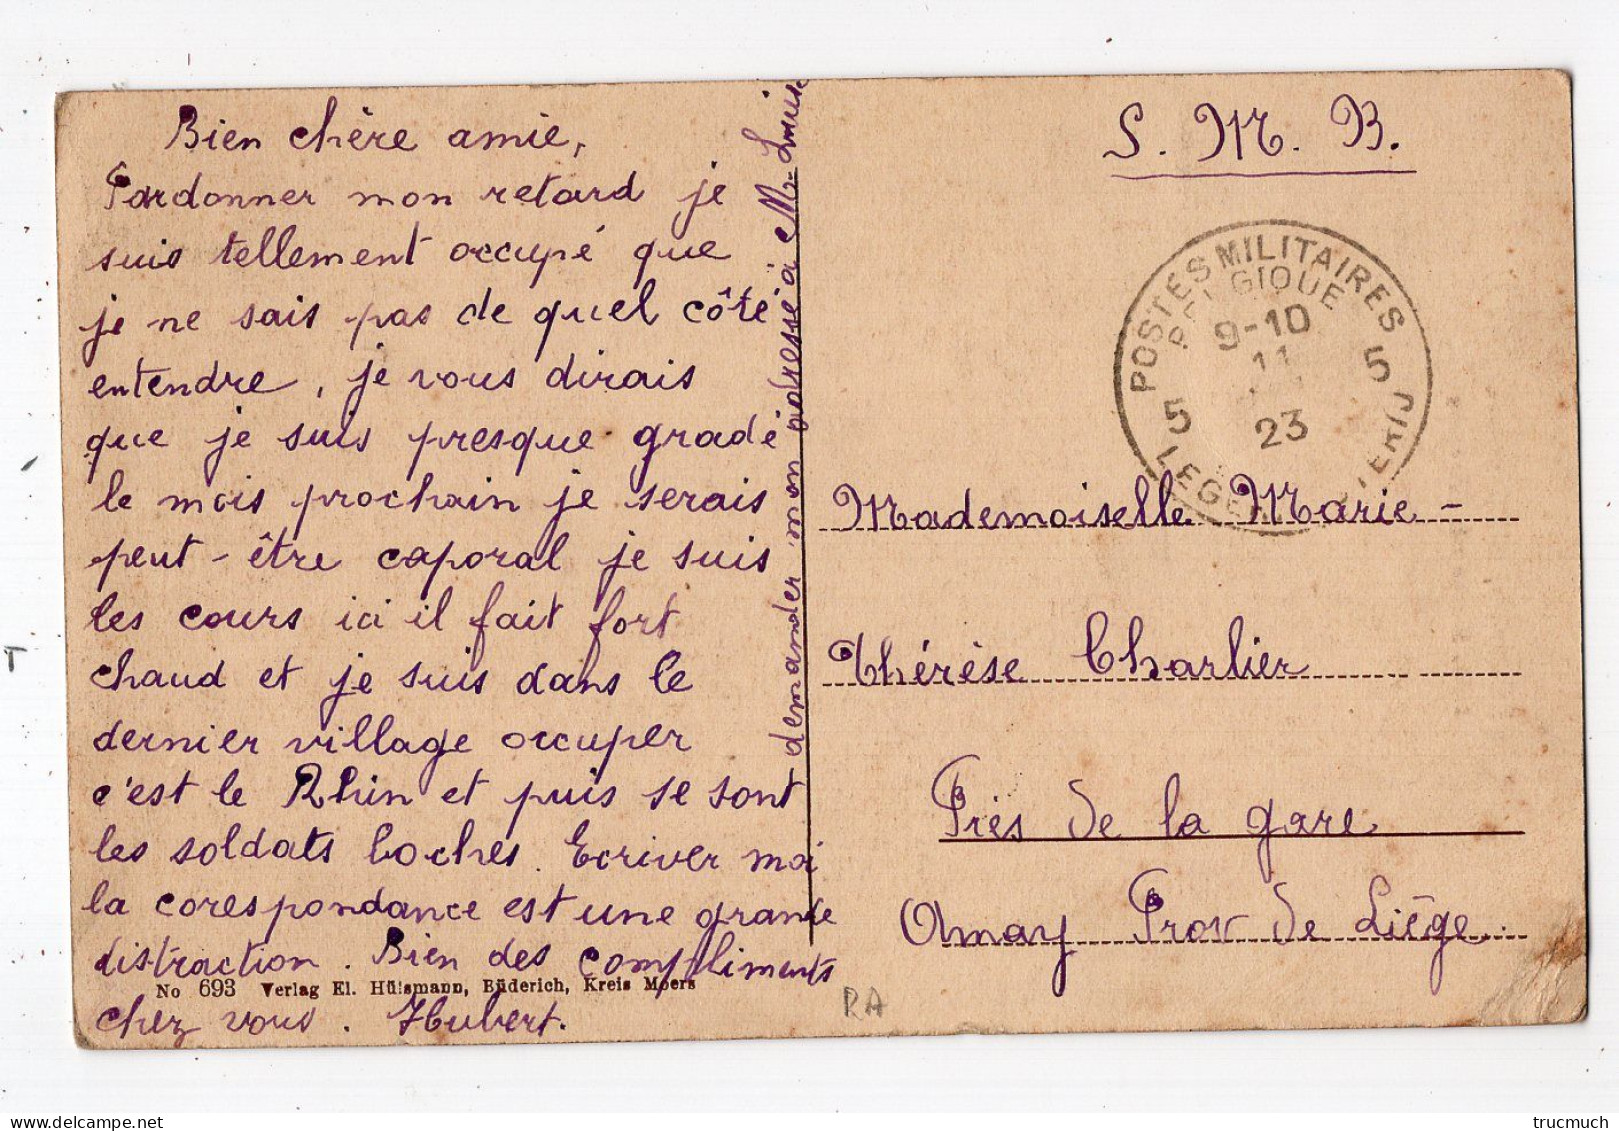 Bien chère amie,
Pardonner mon retard je
suis tellement occupé que
je ne sais pas de quel côté
entendre, je vous dirais
que je suis presque gradé
le mois prochain je serais
peut-être caporal je suis
les cours ici il fait fort
chaud et je suis dans le
dernier village occuper
c'est le Rhin et puis se sont
les soldats boches. Ecriver moi
la corespondance est une grande
distraction. Bien des compliments
chez vous. Hubert.
demander mon adresse à M-Louise
No 693 Verlag El. Hülsmann, Büderich, Kreis Moers
S. M. B.
POSTES MILITAIRES
BELGIQUE
9-10
11
23
5 5
Mademoiselle Marie-
Thérèse Charlier
Près de la gare
Amay Prov de Liège
RA
trucmuch